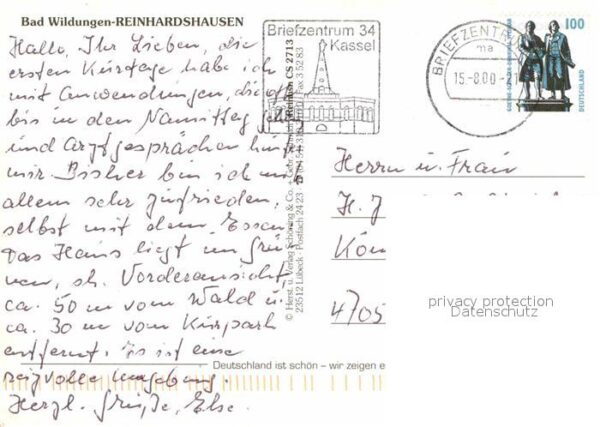 Bad Wildungen-REINHARDSHAUSEN
Hallo, Ihr Lieben, die
ersten Kurtage habe ich
mit Anwendungen, die oft
bis in den Namittag
und Arztgesprächen hinter
mir. Bisher bin ich mit
allem sehr zufrieden,
selbst mit dem Essen.
Das Haus liegt im Grü-
nen, sh. Vorderansicht
ca. 50 m vom Wald u.
ca. 30 m vom Kurpark
entfernt. Es ist eine
reizvolle Umgebung.
Herzl. Grüße, Else.
Briefzentrum 34
Kassel
BRIEFZENTR
ma
15.-8.00-2
100
GOETHE-SCHILLER-DENKMAL WEIMAR
DEUTSCHLAND
CS 2713
© Herst. u. Verlag Schöning & Co. + Gebr. Schmidt
23512 Lübeck · Postfach 24 23
Fax 3 52 83
Herrn u. Frau
H. J
Kön
4705
privacy protection
Datenschutz
Deutschland ist schön – wir zeigen e